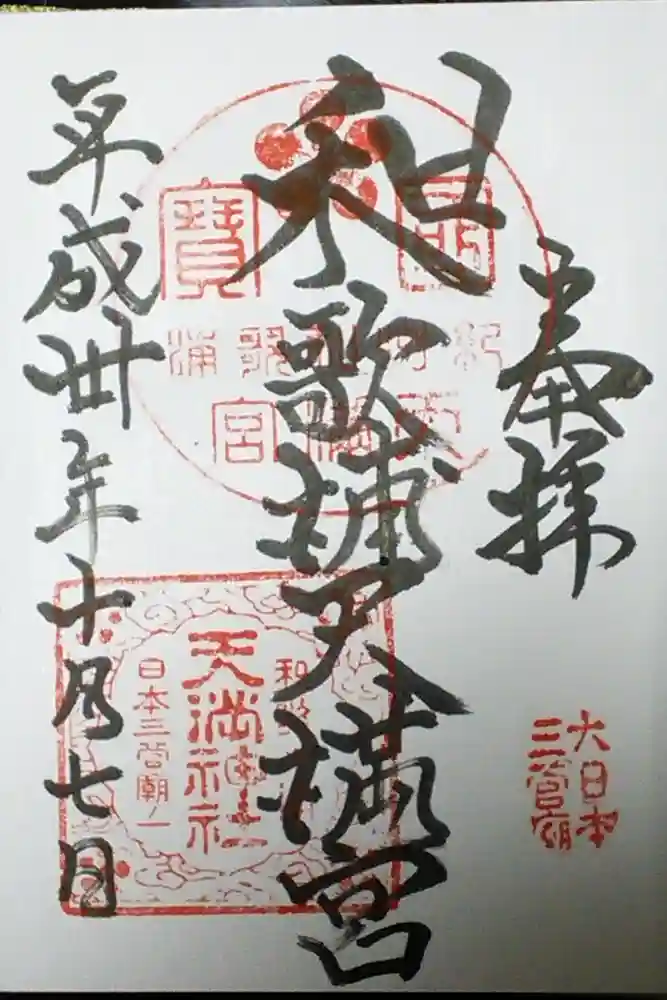 奉拝
大日本
三菅廟
和歌浦天満宮
紀州和歌浦
天満宮
國寶
天満神社
日本三菅廟ノ一
平成卅年十月七日